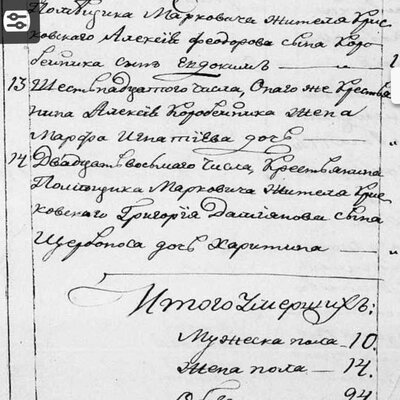 Помѣщика Марковича жителя Крис
ковскаго Алексѣя Феодорова сына Коро
бейника сынъ Евдокимъ
13 Шестьнадцатого числа, Онаго же крестья
нина Алексѣя Коробейника жена
Марфа Игнатіева дочь
14 Двадцать восьмаго числа, Крестьянина
Помѣщика Марковича жителя Крис
ковскаго Григорія Даміянова сына
Щербоноса дочь Харитина
Итого умершихъ:
Мужеска пола — 10.
Жена пола — 14.
24